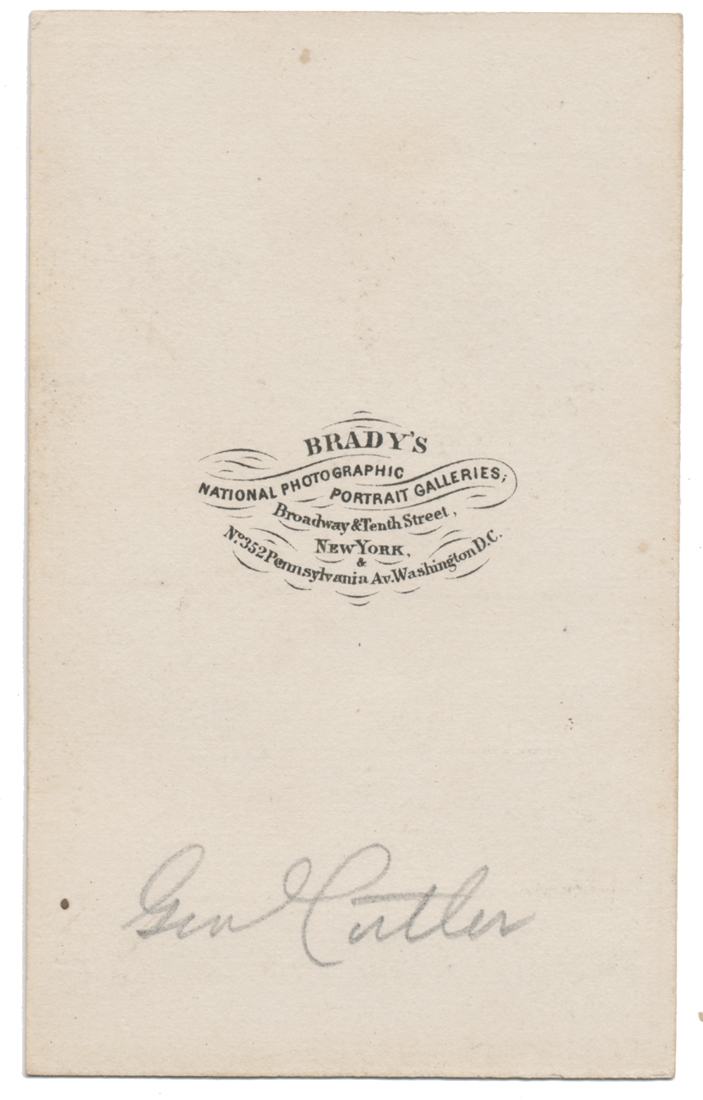 BRADY'S
NATIONAL PHOTOGRAPHIC PORTRAIT GALLERIES,
Broadway & Tenth Street,
NEW YORK,
&
No. 352 Pennsylvania Av. Washington D.C.
Genl Cutler